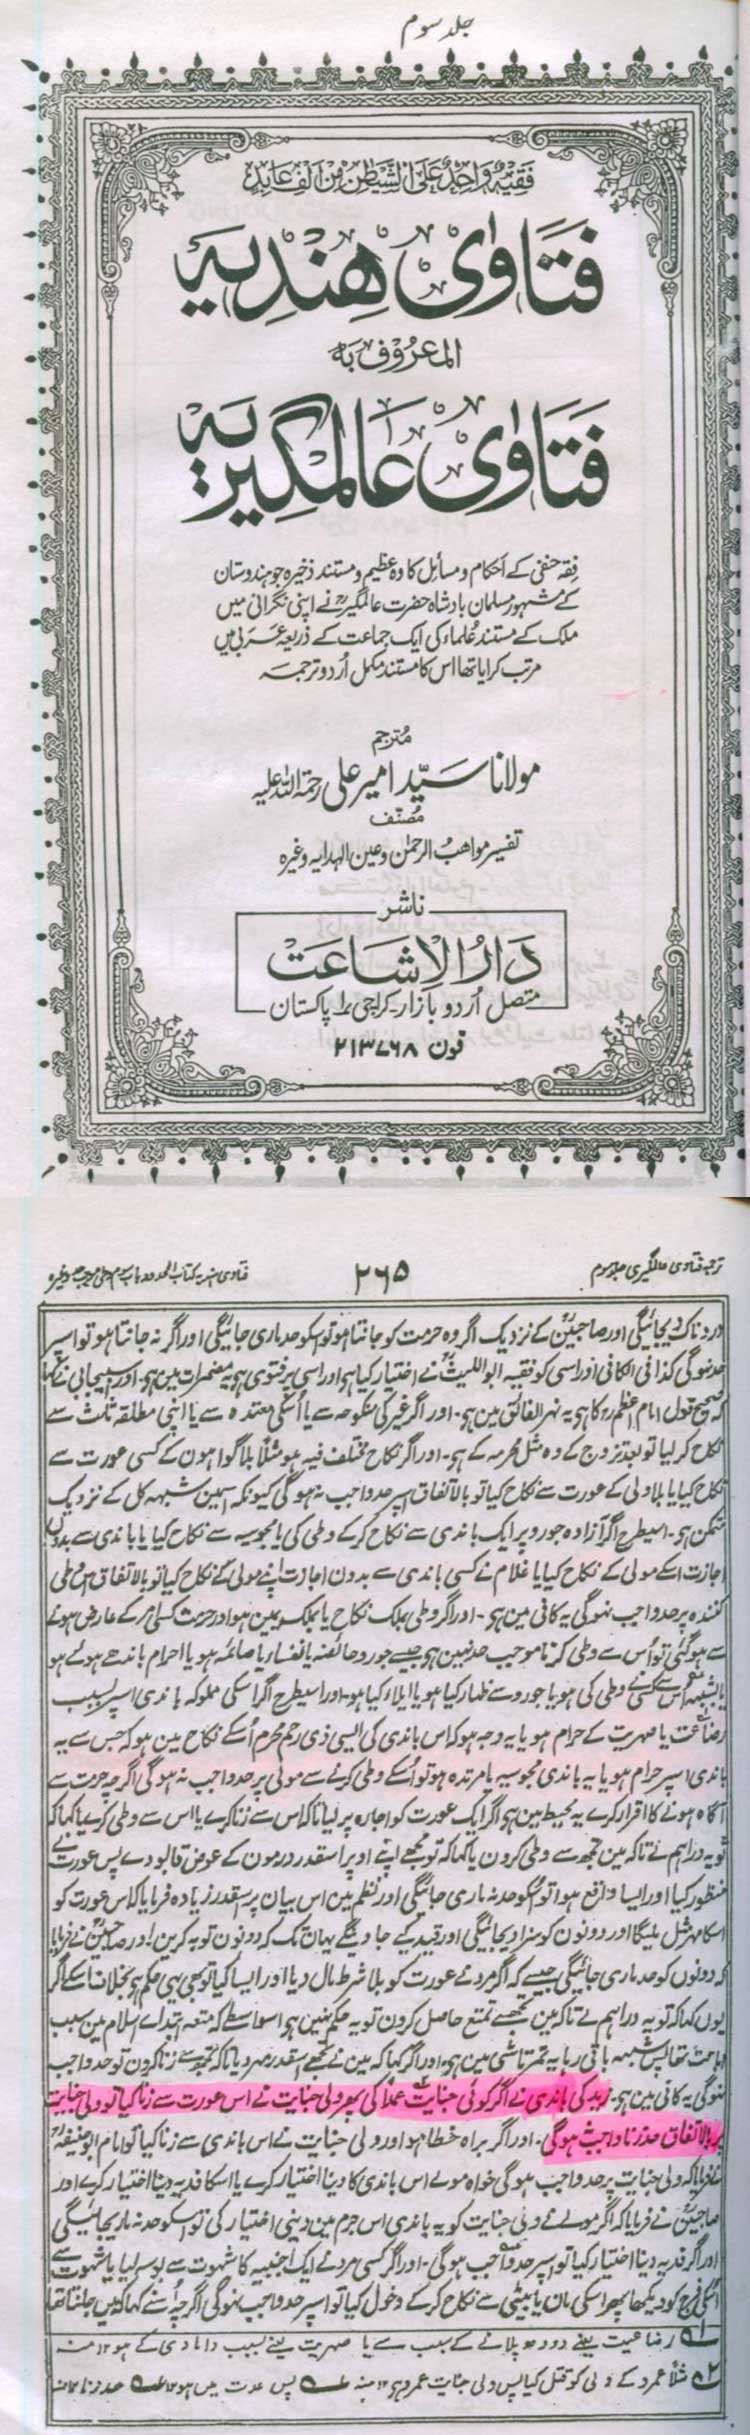 جلد سوم
فقیه واحد على الشیطن من الف عابد
فتاوی هندیه
المعروف به
فتاوی عالمگیریه
فقہ حنفی کے احکام و مسائل کا وہ عظیم و مستند ذخیرہ جو ہندوستان
کے مشہور مسلمان بادشاہ حضرت عالمگیرؒ نے اپنی نگرانی میں
ملک کے مستند علماء کی ایک جماعت کے ذریعہ عربی میں
مرتب کرایا تھا اس کا مستند مکمل اُردو ترجمہ
مُترجم
مولانا سیّد امیر علی رحمۃ اللہ علیہ
مُصنّف
تفسیر مواہب الرحمٰن و عین الہدایہ وغیرہ
ناشر
دارُالاِشاعت
متصل اُردو بازار۔ کراچی ۱ پاکستان
فون ۲۱۳۷۶۸
ترجمہ فتاوی عالمگیری جلد سوم
۲۶۵
فتاوی ہندیہ کتاب الحدود باب سوم وطی موجب حد وغیرہ
دردناک دیجائیگی اور صاحبینؒ کے نزدیک اگر وہ حرمت کو جانتا ہو تو اسکو حد ماری جائیگی اور اگر نہ جانتا ہو تو اسپر
حد نہوگی کذا فی الکافی اور اسی کو فقیہ ابو اللیثؒ نے اختیار کیا ہو اور اسی پر فتوی ہو یہ مضمرات مین ہو۔ اور اسبیجابی نے کہا
کہ صحیح قول امام اعظم رح کا ہو یہ نہر الفائق مین ہو۔ اور اگر غیر کی منکوحہ سے یا اُسکی معتدہ سے یا اپنی مطلقہ ثلث سے
نکاح کر لیا تو بعد تزوج کے وہ مثل محرمہ کے ہو۔ اور اگر نکاح مختلف فیہ ہو مثلاً بلا گواہون کے کسی عورت سے
نکاح کیا یا بلا ولی کے عورت سے نکاح کیا تو بالاتفاق اسپر حد واجب نہ ہوگی کیونکہ اسمین شبہہ کل کے نزدیک
متمکن ہو۔ اسیطرح اگر آزادہ جورو پر ایک باندی سے نکاح کر کے وطی کی یا مجوسیہ سے نکاح کیا یا باندی سے بدون
اجازت اسکے مولی کے نکاح کیا یا غلام نے کسی باندی سے بدون اجازت اپنے مولی کے نکاح کیا تو بالاتفاق اس وطی
کنندہ پر حد واجب نہوگی یہ کافی مین ہو۔ اور اگر وطی بملک نکاح یا بملک یمین ہو اور حرمت کسی امر کے عارض ہونے
سے ہوگئی تو اُس سے وطی کرنا موجب حد نہین ہو جیسے جورو حائضہ یا نفسا یا صائمہ ہو یا احرام باندھے ہوئے ہو
یا بشبہہ اس سے کسی نے وطی کی ہو یا جورو سے ظہار کیا ہو یا ایلاء کیا ہو۔ اور اسیطرح اگر اسکی مملوکہ باندی اسپر بسبب
رضاعت یا صہریت کے حرام ہو یا یہ وجہ ہو کہ اس باندی کی ایسی ذی رحم محرم اُسکے نکاح مین ہو کہ جس سے یہ
باندی اسپر حرام ہو یا یہ باندی مجوسیہ یا مرتدہ ہو تو اُسکے وطی کرنے سے مولی پر حد واجب نہ ہوگی اگرچہ حرمت سے
آگاہ ہونے کا اقرار کرے یہ محیط مین ہو اگر ایک عورت کو اجارہ پر لیا تاکہ اس سے زنا کرے یا اس سے وطی کرے یا کہا کہ
تو یہ دراہم لے تاکہ مین تجھ سے وطی کرون یا کہا کہ تو مجھے اپنے اوپر اسقدر درمون کے عوض قابو دے پس عورت نے
منظور کیا اور ایسا واقع ہوا تو اُسکو حد نہ ماری جائیگی اور نظم مین اس بیان پر سیقدر زیادہ فرمایا کہ اس عورت کو
اسکا مہر مثل ملیگا اور دونون کو سزا دیجائیگی اور قید کیے جاوینگے یہان تک کہ دونون توبہ کرین اور صاحبینؒ نے فرمایا
کہ دونون کو حد ماری جائیگی جیسے کہ اگر مرد نے عورت کو بلا شرط مال دیا اور ایسا کیا تو بھی یہی حکم ہو بخلاف اسکے اگر
یون کہا کہ تو یہ دراہم لے تاکہ مین تجھسے تمتع حاصل کرون تو یہ حکم نہین ہو اسواسطے کہ متعہ ابتداے اسلام مین سبب
اباحت تھا پس شبہہ باقی رہا یہ تمرتاشی مین ہو۔ اور اگر کہا کہ مین نے تجھے اسقدر مہر دیا تاکہ تجھسے زنا کرون تو حد واجب
نہوگی یہ کافی مین ہو۔ زید کی باندی نے اگر کوئی جنایت عمداً کی پھر ولی جنایت نے اس عورت سے زنا کیا تو ولی جنایت
پر بالاتفاق حد زنا واجب ہوگی۔ اور اگر براہ خطا ہو اور ولی جنایت نے اس باندی سے زنا کیا تو امام ابو حنیفہؒ
نے فرمایا کہ ولی جنایت پر حد واجب ہوگی خواہ مولے اس باندی کا دینا اختیار کرے یا اسکا فدیہ دینا اختیار کرے اور
صاحبینؒ نے فرمایا کہ اگر مولے نے ولی جنایت کو یہ باندی اس جرم مین دینی اختیار کی تو اسکو حد نہ ماریجائیگی
اور اگر فدیہ دینا اختیار کیا تو اسپر حد واجب ہوگی۔ اور اگر کسی مرد نے ایک اجنبیہ کا شہوت سے بوسہ لیا یا شہوت سے
اُسکی فرج کو دیکھا پھر اسکی مان یا بیٹی سے نکاح کر کے دخول کیا تو اسپر حد واجب نہوگی اگرچہ اُسنے کہا کہ مین جانتا تھا
۱ رضاعت یعنے دودھ پلانے کے سبب سے یا صہریت یعنے بسبب دامادی کے ہو ۱۲ منہ
۲ مثلاً عمرو کے ولی کو قتل کیا پس ولی جنایت عمرو ہو ۱۲ منہ پس عدت میں ہو ۱۲ حد زنا ۱۲ منہ